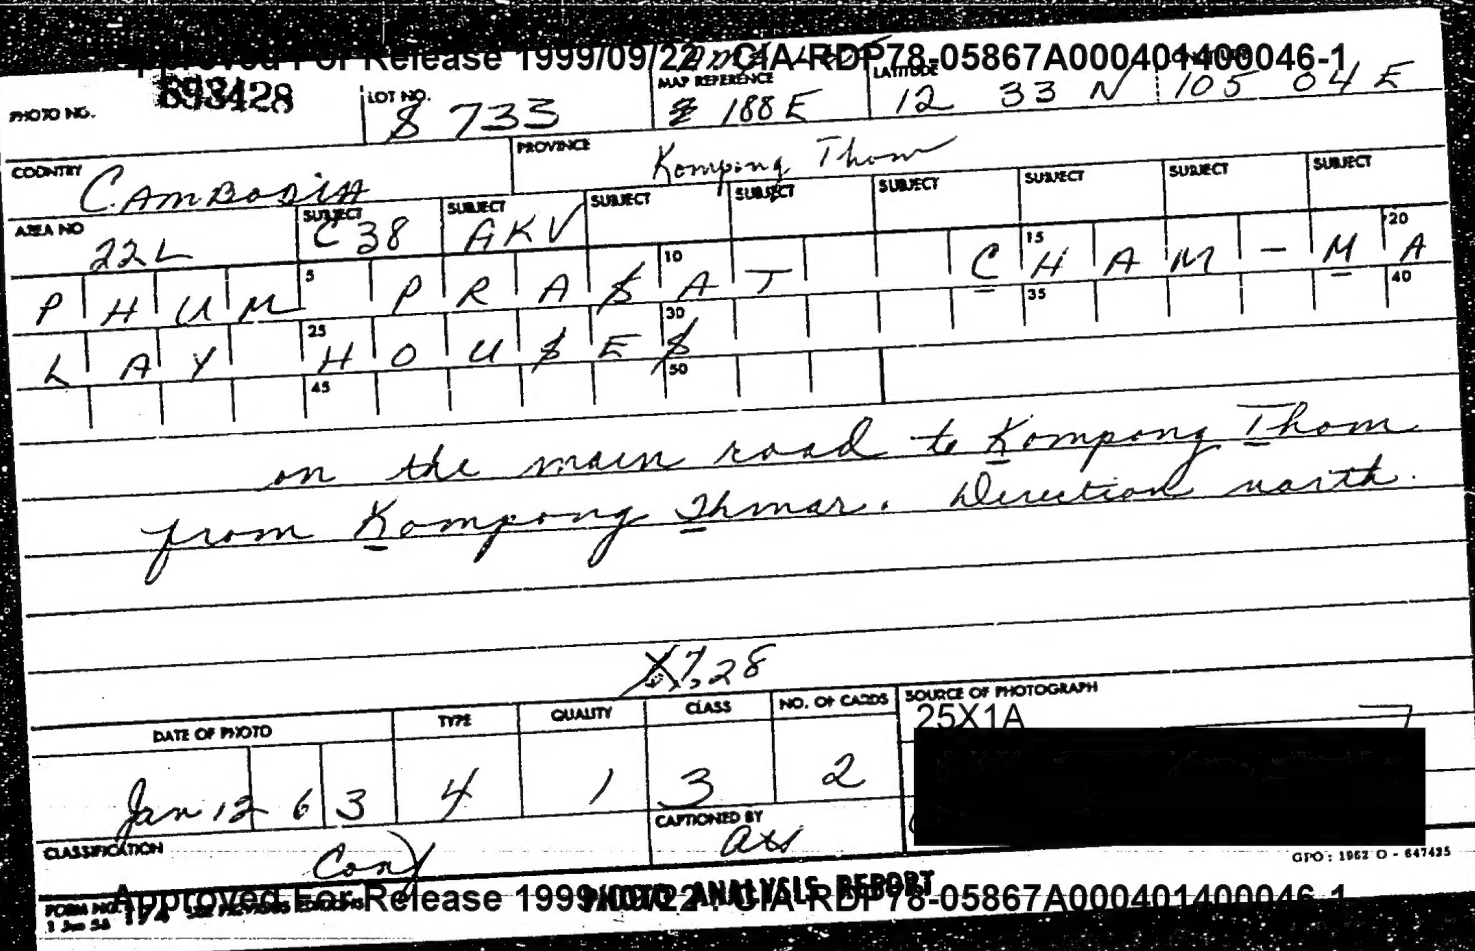 Approved For Release 1999/09/22 : CIA-RDP78-05867A000401400046-1
PHOTO NO. 693428 LOT NO. 8 733 MAP REFERENCE 188 E LATITUDE 12 33 N 105 04 E
COUNTRY CAMBODIA PROVINCE Kompong Thom
AREA NO 22L SUBJECT C38 SUBJECT AKV SUBJECT SUBJECT SUBJECT SUBJECT SUBJECT SUBJECT
PHUM 5 PRASAT 10 CHAM-MA 15 20
LAY 25 HOUSES 30 35 40
45 50
on the main road to Kompong Thom
from Kompong Thmar. Direction north.
X7,28
DATE OF PHOTO TYPE QUALITY CLASS NO. OF CARDS SOURCE OF PHOTOGRAPH
25X1A
Jan 12 63 4 1 3 2
CLASSIFICATION Conf CAPTIONED BY
GPO : 1962 O - 647435
FORM NO. 174 PHOTO ANALYSIS REPORT
1 Jun 56
Approved For Release 1999/09/22 : CIA-RDP78-05867A000401400046-1